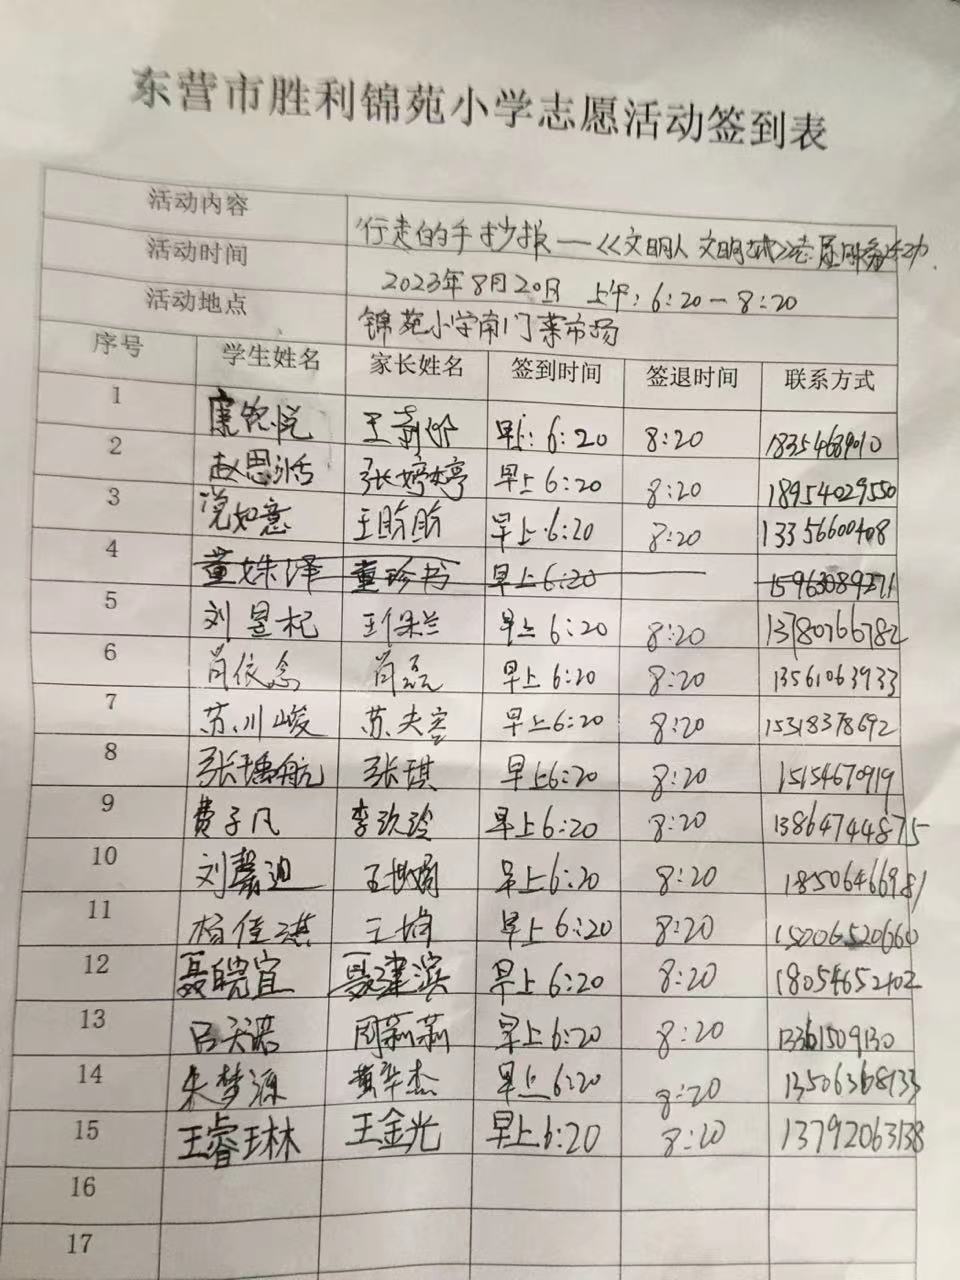 东营市胜利锦苑小学志愿活动签到表
活动内容 行走的手抄报—《文明人 文明城》志愿服务活动
活动时间 2023年8月20日 上午:6:20-8:20
活动地点 锦苑小学南门菜市场
序号 学生姓名 家长姓名 签到时间 签退时间 联系方式
1 早上:6:20 8:20
2 赵思活 张婷婷 早上6:20 8:20 18954029550
3 党如意 王盼盼 早上6:20 8:20 13356600408
4 董姝泽 董珍书 早上6:20 15963089271
5 刘昱杞 王保兰 早上6:20 8:20 13780766782
6 肖依念 肖磊 早上6:20 8:20 13561063933
7 苏川峻 早上6:20 8:20 15318378692
8 张琪 早上6:20 8:20 15154670919
9 费子凡 李玖玲 早上6:20 8:20 13864744875
10 刘馨迪 早上6:20 8:20 18506466981
11 杨佳琪 王娟 早上6:20 8:20 15006520660
12 聂皖宜 聂建滨 早上6:20 8:20 18054652102
13 吕天诺 周莉莉 早上6:20 8:20
14 朱梦源 黄华杰 早上6:20 8:20 13506368133
15 王睿琳 王金光 早上6:20 8:20 13792063138
16
17